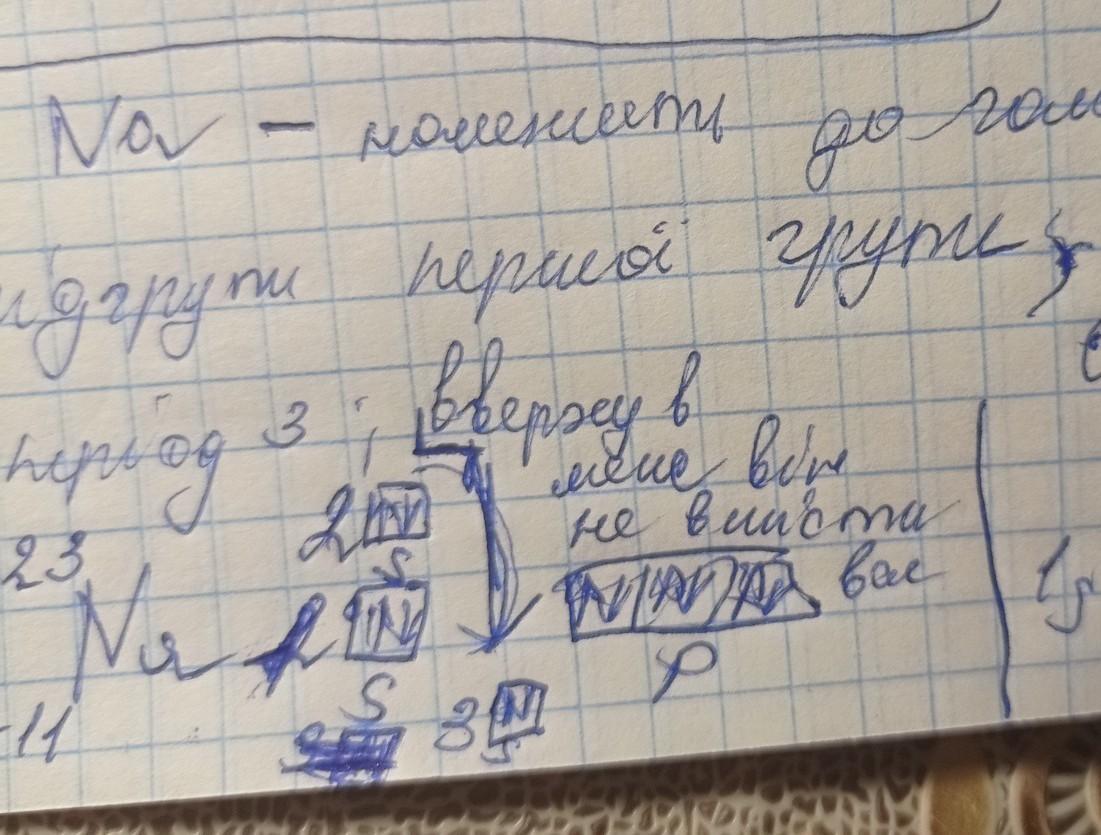 Na – належить до гол
ідгрупи першої групи;
період 3; вверху в
мене він
2 не вмісти
s вся
23 Na 2
s p
+11 3 s
1s